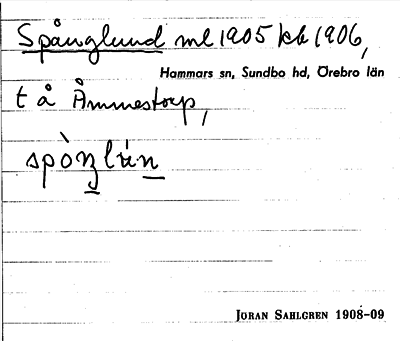 Spånglund ml 1905 kk 1906,
Hammars sn, Sundbo hd, Örebro län
t å Åmmestorp,
JÖRAN SAHLGREN 1908-09